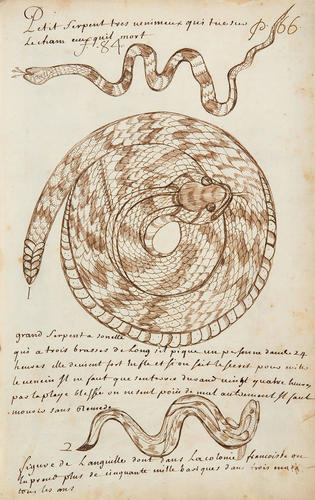 Petit Serpent tres venimeux qui tue sur
Le cham ceux quil mort
p. 66
f. 84
1
grand Serpent a sonette
qui a trois brasses de Long sil pique un personne dans 24
heures Elle devient fort Enfle et si on fait le secret pour
le venein Il en faut que sentir durand vingt quatre heures
pas la playe blesse on ne sent poin de mal autrement Il faut
mourir sans Remede
2
figure de Languille dont dans La colonie francoise on
en prend plus de cinquante mille bariques dans trois mois
tous les ans